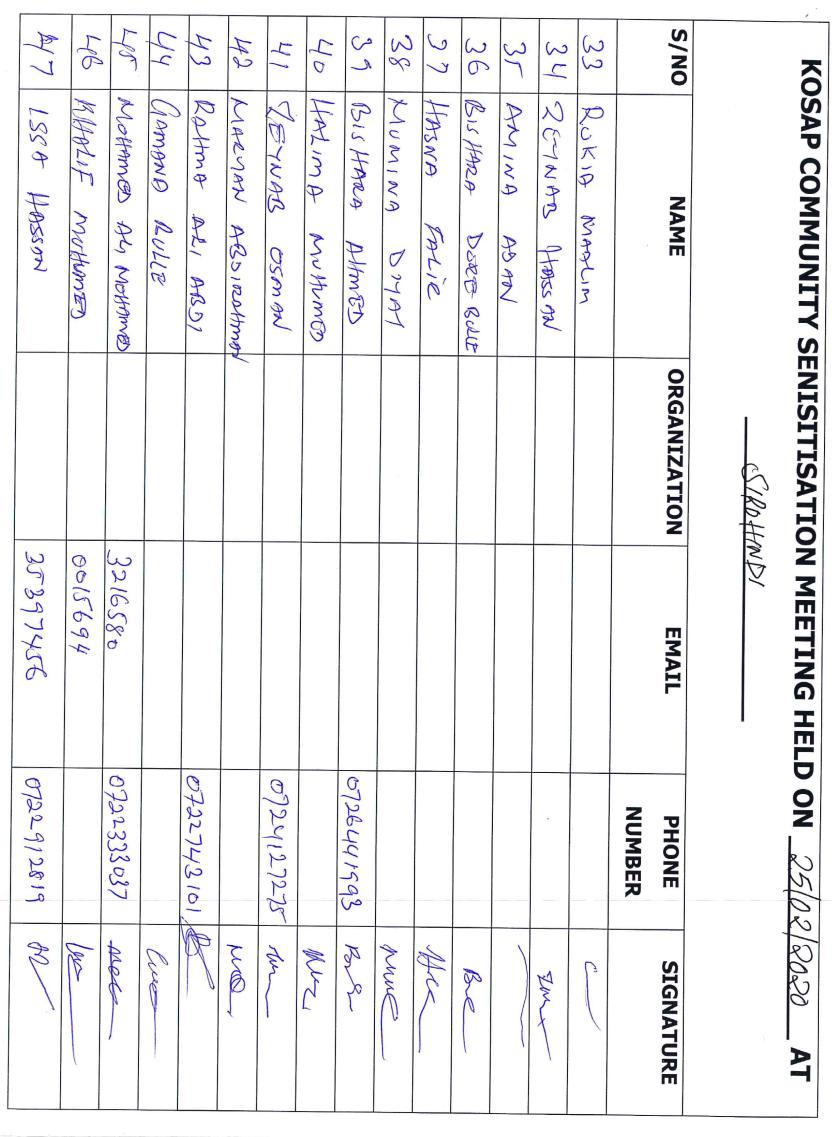 KOSAP COMMUNITY SENISITISATION MEETING HELD ON 25/02/2020 AT
SIROHINDI
S/NO NAME ORGANIZATION EMAIL PHONE NUMBER SIGNATURE
33 RUKIA MAALIM
34 ZEYNAB HASSAN
35 AMINA ADAN
36 BISHARA DORE BULLE
37 HASNA FALIE
38 MUMINA
39 BISHARA AHMED 0726441993
40 HALIMA MUHUMED
41 ZEYNAB OSMAN 0724127275
42 MARYAN ABDIRAHMAN
43 RAHMA ALI ABDI 0722743101
44 GAMANA BULLE
45 MOHAMED ALI MOHAMED 3216580 0722333037
46 KHALIF MUHUMED 0015694
47 ISSA HASSAN 35397456 0722912819